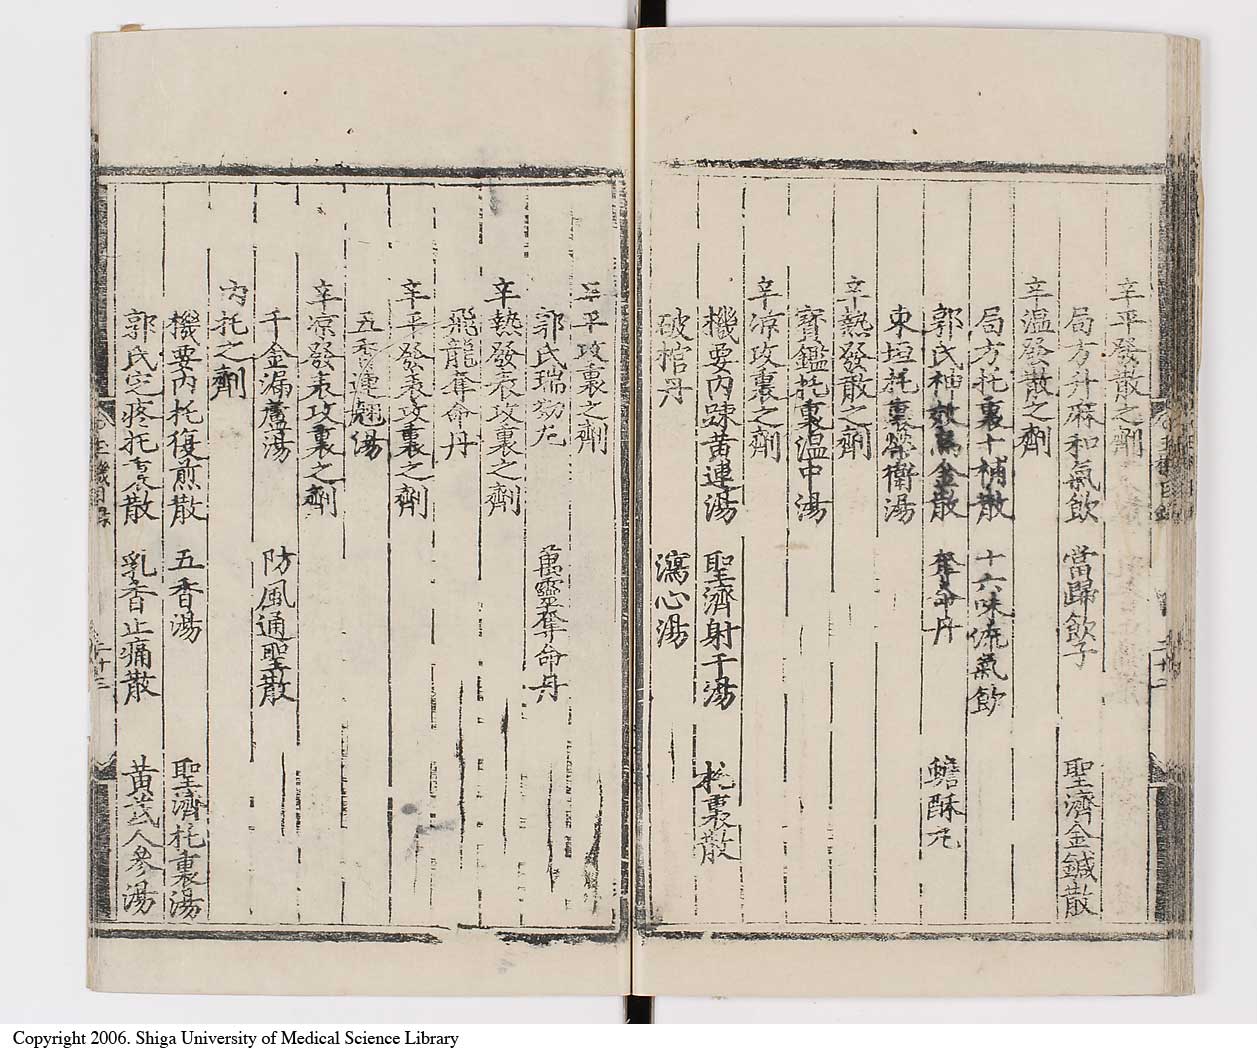 辛平發散之劑
局方升麻和氣飲　當歸飲子　聖濟金鍼散
辛温發散之劑
局方托裏十補散　十六味流氣飲
郭氏神效烏金散　奪命丹　蟾酥元
東垣托裏榮衛湯
辛熱發散之劑
寶鑑托裏温中湯
辛凉攻裏之劑
機要内踈黄連湯　聖濟射干湯　托裏散
破棺丹　瀉心湯
辛平攻裏之劑
郭氏瑞　萬靈奪命丹
辛熱發表攻裏之劑
飛龍奪命丹
辛平發表攻裏之劑
五香連翹湯
辛凉發表攻裏之劑
千金漏蘆湯　防風通聖散
内托之劑
機要内托復煎散　五香湯　聖濟托裏湯
郭氏定疼托裏散　乳香止痛散　黄芪人參湯
Copyright 2006. Shiga University of Medical Science Library